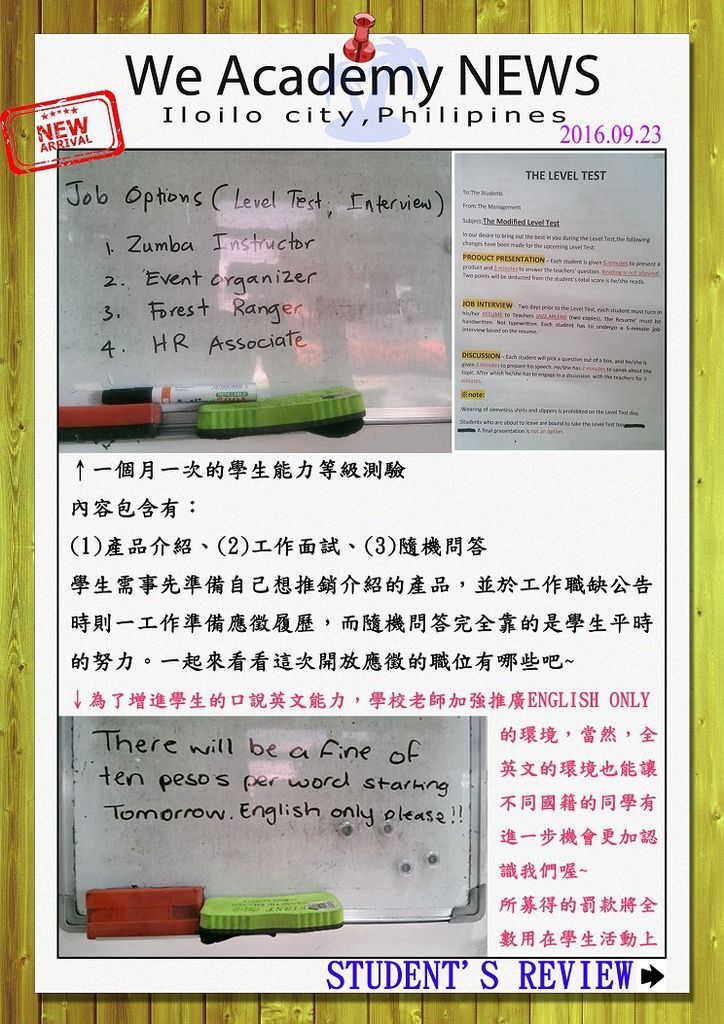 We Academy NEWS
Iloilo city,Philipines
NEW
ARRIVAL
2016.09.23
Job Options (Level Test, Interview)
1. Zumba Instructor
2. Event organizer
3. Forest Ranger
4. HR Associate
THE LEVEL TEST
To:The Students
From:The Management
Subject:The Modified Level Test
In our desire to bring out the best in you during the Level Test,the following
changes have been made for the upcoming Level Test:
PRODUCT PRESENTATION – Each student is given 5 minutes to present a
product and 3 minutes to answer the teachers' question. Reading is not allowed.
Two points will be deducted from the student's total score is he/she reads.
JOB INTERVIEW - Two days prior to the Level Test, each student must turn in
his/her RESUME to Teachers (two copies). The Resume' must be
handwritten. Not typewritten. Each student has to undergo a 5-minute job
interview based on the resume.
DISCUSSION – Each student will pick a question out of a box, and he/she is
given 2 minutes to prepare his speech. He/She has 2 minutes to speak about the
topic. After which he/she has to engage in a discussion with the teachers for 3
minutes.
※note:
Wearing of sleeveless shirts and slippers is prohibited on the Level Test day.
Students who are about to leave are bound to take the Level Test too
A final presentation is not an option.
↑一個月一次的學生能力等級測驗
內容包含有：
(1)產品介紹、(2)工作面試、(3)隨機問答
學生需事先準備自己想推銷介紹的產品，並於工作職缺公告
時則一工作準備應徵履歷，而隨機問答完全靠的是學生平時
的努力。一起來看看這次開放應徵的職位有哪些吧~
↓為了增進學生的口說英文能力，學校老師加強推廣ENGLISH ONLY
的環境，當然，全
英文的環境也能讓
不同國籍的同學有
進一步機會更加認
識我們喔~
所募得的罰款將全
數用在學生活動上
There will be a fine of
ten pesos per word starting
Tomorrow. English only please!!
STUDENT'S REVIEW